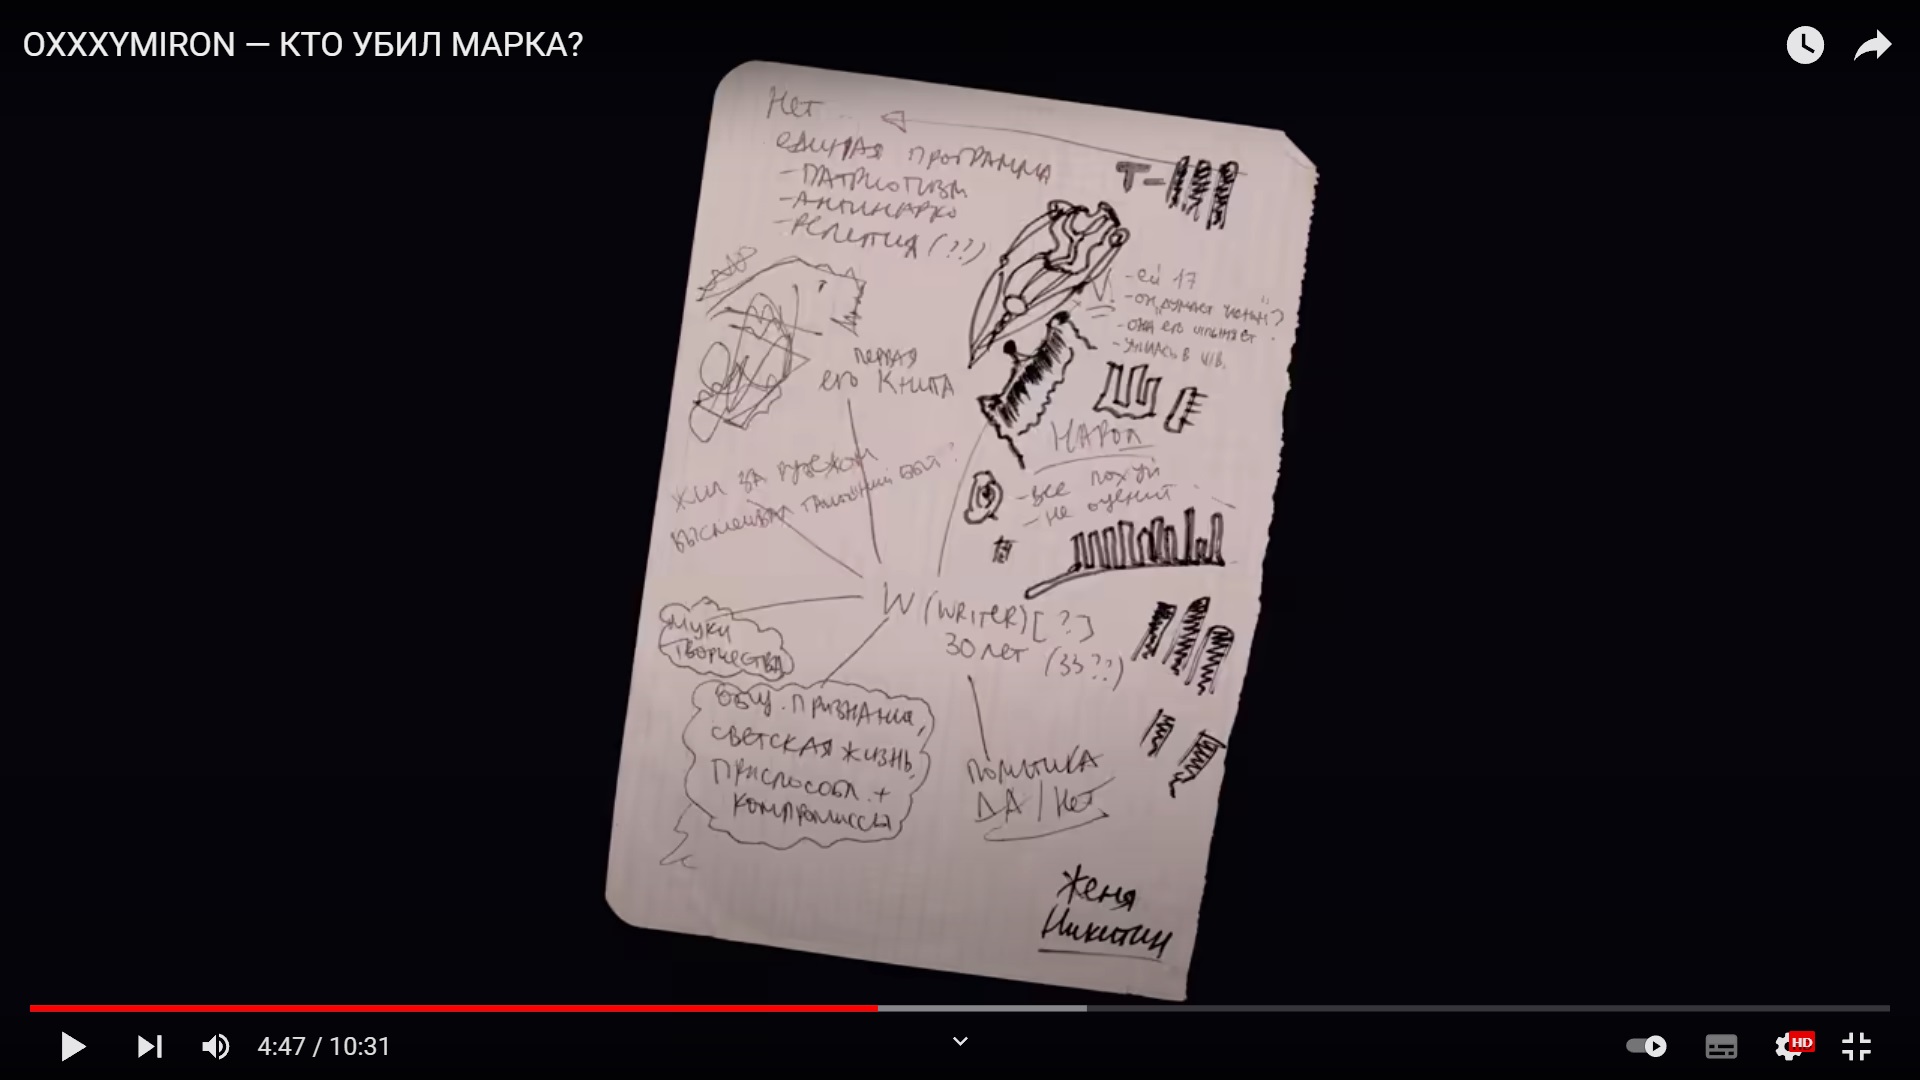 OXXXYMIRON — КТО УБИЛ МАРКА?
Нет
единая программа
- патриотизм
- антинарко
- религия (??)
Т-
V.
- ей 17
- он думает "ценит"?
- она его
- училась в
первая
его книга
НАРОД
- все похуй
- не оценит
жил за рубежом
высмеивал тамошний быт?
W (WRITER) [?]
30 лет (33??)
муки
творчества
общ. признание,
светская жизнь,
приспособл. +
компромиссы
политика
ДА / Нет
Женя
Никитин
4:47 / 10:31
HD